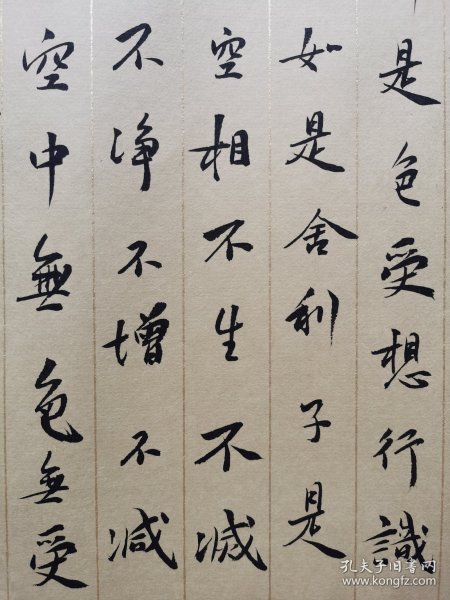 是色受想行識
如是舍利子是
空相不生不滅
不淨不增不減
空中無色無受
孔夫子旧书网
www.kongfz.com